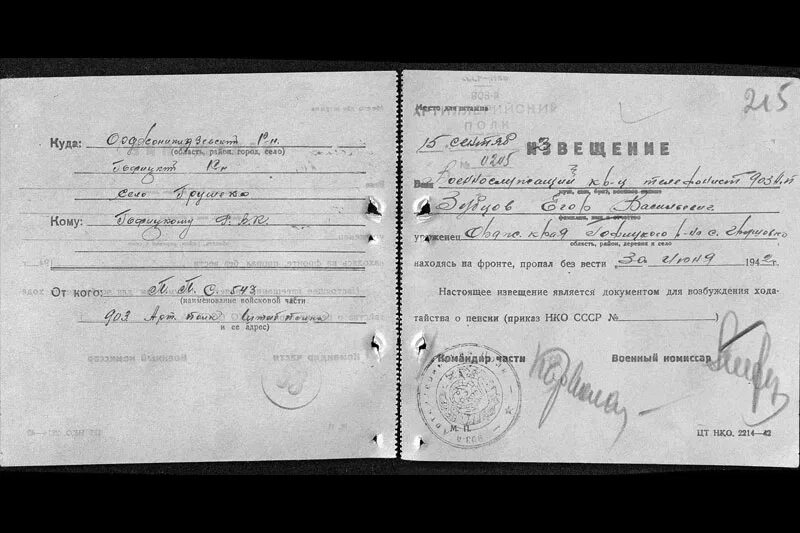 Куда: Орджоникидзевск Р-н.
(область, район, город, село)
Гофицкт Р-н
село Грушевка
Кому: Гофицкому Р.В.К.
От кого: П. П. С. - 543
(наименование войсковой части
903 Арт. полк Штаб полка
и ее адрес)
215
Место для штампа
АРТИЛЛЕРИЙСКИЙ
ПОЛК
15 сентябр
№ 0205
ИЗВЕЩЕНИЕ
Ваш Военнослужащий кр-ц телефонист 903 А.П
муж, сын, брат, военное звание
Егор Васильевич
фамилия, имя и отчество
уроженец Ордж. край Гофицкого р-на с. Грушевка
область, район, деревня и село
находясь на фронте, пропал без вести 30 июня 1942 г.
Настоящее извещение является документом для возбуждения хода-
тайства о пенсии (приказ НКО СССР № )
Командир части
Военный комиссар
М. П.
ЦТ НКО. 2214—42